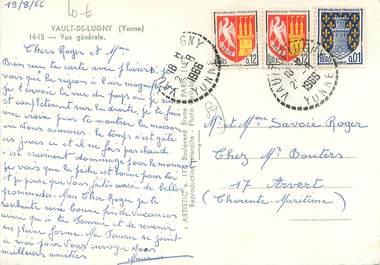 19/8/66
10-E
VAULT-DE-LUGNY (Yonne)
14-18 — Vue générale.
Chers Roger et Mme
Bien reçu ta carte avec plaisir, je
vois que la région à l'air magnifique
je t'envoie la vue du pays où je suis
et complètement sur la droite, je te fais
une croix pour te montrer la maison
où nous sommes. Le temps s'est gâté
ces jours ci et il ne fait pas chaud
c'est vraiment dommage pour le moment
je vois que la pêche est bonne pour toi
et je pense que vous faites aussi de belles
promenades. Mon cher Roger je te
souhaite une bonne fin de vacances
ainsi qu'à ta femme et de revenir
en pleine forme. Ma femme se joint
à moi pour vous envoyer nos
meilleures amitiés
Maurice
"ARTISTIC"
Reproduction Interdite
Boulevard
PARIS
Photo
RÉPUBLIQUE FRANÇAISE
0,12
RÉPUBLIQUE FRANÇAISE
0,12
0,01
VAULT DE LUGNY
YONNE
18 H
1966
VAULT DE LUGNY
YONNE
18 H
1966
Mr et Mme Savoie Roger
Chez Mr Bouters
17 Arvert
(Charente Maritime)